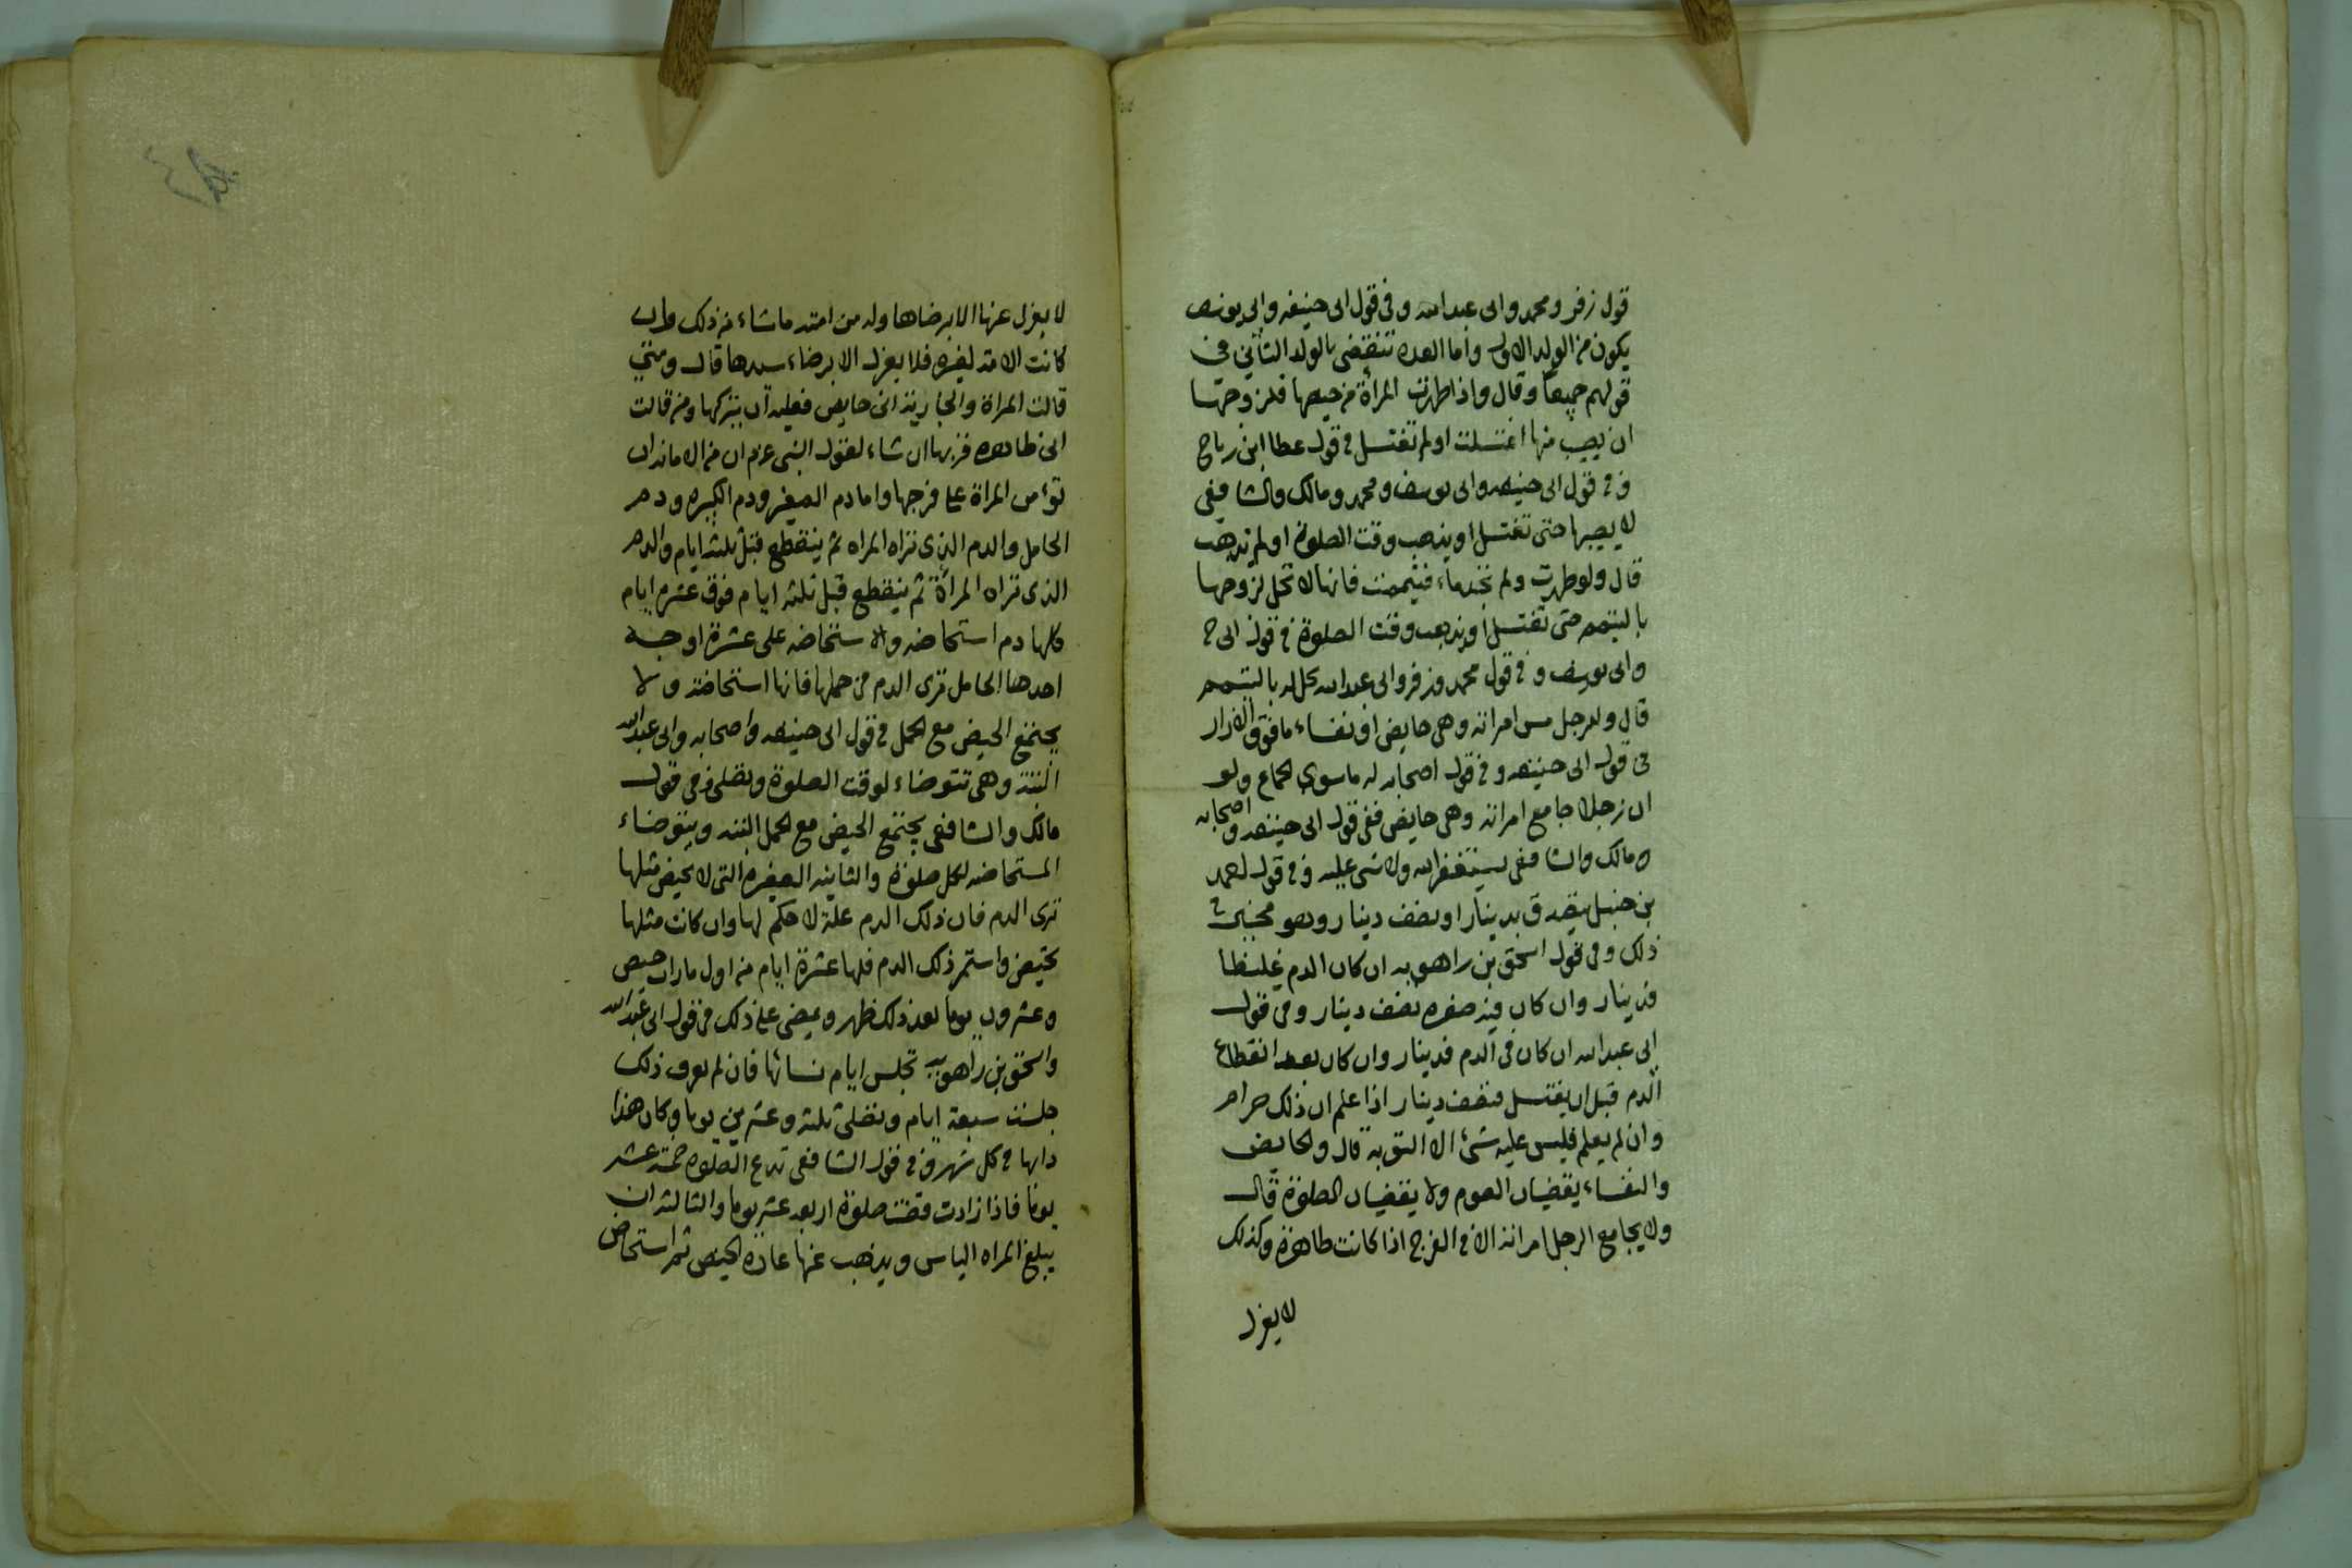 قول زفر ومحمد وابى عبد الله وفى قول ابى حنيفه وابى يوسف
يكون من الولد الاول واما العده تنقضى بالولد الثانى فى
قولهم جميعا وقال واذا طهرت المرأة من حيضها فلزوجها
ان يصيب منها اغتسلت او لم تغتسل فى قول عطا ابن رباح
وفى قول ابى حنيفه وابى يوسف ومحمد ومالك والشافعى
لا يصيبها حتى تغتسل او يذهب وقت الصلوة او لم يذهب
قال ولو طهرت ولم تجد ماء فتيممت فانها لا تحل لزوجها
بالتيمم حتى تغتسل او يذهب وقت الصلوة فى قول ابى ح
وابى يوسف وفى قول محمد وزفر وابى عبد الله تحل له بالتيمم
قال وللرجل من امراته وهى حايض او نفساء ما فوق الازار
فى قول ابى حنيفه وفى قول اصحابه له ما سوى الجماع ولو
ان رجلا جامع امراته وهى حايض ففى قول ابى حنيفه واصحابه
ومالك والشافعى يستغفر الله ولا شى عليه وفى قول احمد
بن حنبل يتصدق بدينار او نصف دينار وهو مخير فى
ذلك وفى قول اسحق بن راهويه ان كان الدم غليظا
فدينار وان كان فيه صفره نصف دينار وفى قول
ابى عبد الله ان كان فى الدم فدينار وان كان بعد انقطاع
الدم قبل ان يغتسل فنصف دينار اذا علم ان ذلك حرام
وان لم يعلم فليس عليه شئ الا التوبة قال والحايض
والنفساء يقضيان الصوم ولا يقضيان الصلوة قال
ولا يجامع الرجل امراته الا فى الفرج اذا كانت طاهرة وكذلك
لا يعزل
لا يعزل عنها الا برضاها وله من امته ما شاء من ذلك وان
كانت الامة لغيره فلا يعزل الا برضاء سيدها قال ومتى
قالت المراة والجارية انى حايض فعليه ان يتركها ومن قالت
انى طاهره قربها ان شاء لقول النبى عم ان من الامانة ان
تؤمن المراة على فرجها واما دم الصغير ودم الكبيره ودم
الحامل والدم الذى تراه المراه ثم ينقطع قبل ثلثه ايام والدم
الذى تراه المرأة ثم ينقطع قبل ثلثه ايام فوق عشره ايام
وكلها دم استحاضه والاستحاضه على عشرة اوجه
احدها الحامل ترى الدم من حملها فانها استحاضة ولا
يجتمع الحيض مع الحمل فى قول ابى حنيفه واصحابه وابى عبد الله
البتة وهى تتوضاء لوقت الصلوة وتصلى وفى قول
مالك والشافعى يجتمع الحيض مع الحمل البته ويتوضاء
المستحاضه لكل صلوة والثانيه الصغيره التى لا تحيض مثلها
ترى الدم فان ذلك الدم علة لا حكم لها وان كانت مثلها
تحيض واستمر ذلك الدم فلها عشرة ايام من اول مارات حيض
وعشرون يوما بعد ذلك طهر ويمضى على ذلك فى قول ابى عبد الله
واسحق بن راهويه تجلس ايام نسائها فان لم تعرف ذلك
جلست سبعة ايام وتصلى ثلثه وعشرين يوما وكان هذا
دابها فى كل شهر وفى قول الشافعى تدع الصلوه خمسة عشر
يوما فاذا زادت قضت صلوة اربعه عشر يوما والثالثه ان
يبلغ المراه الياس ويذهب عنها عادة الحيض ثم استحاض